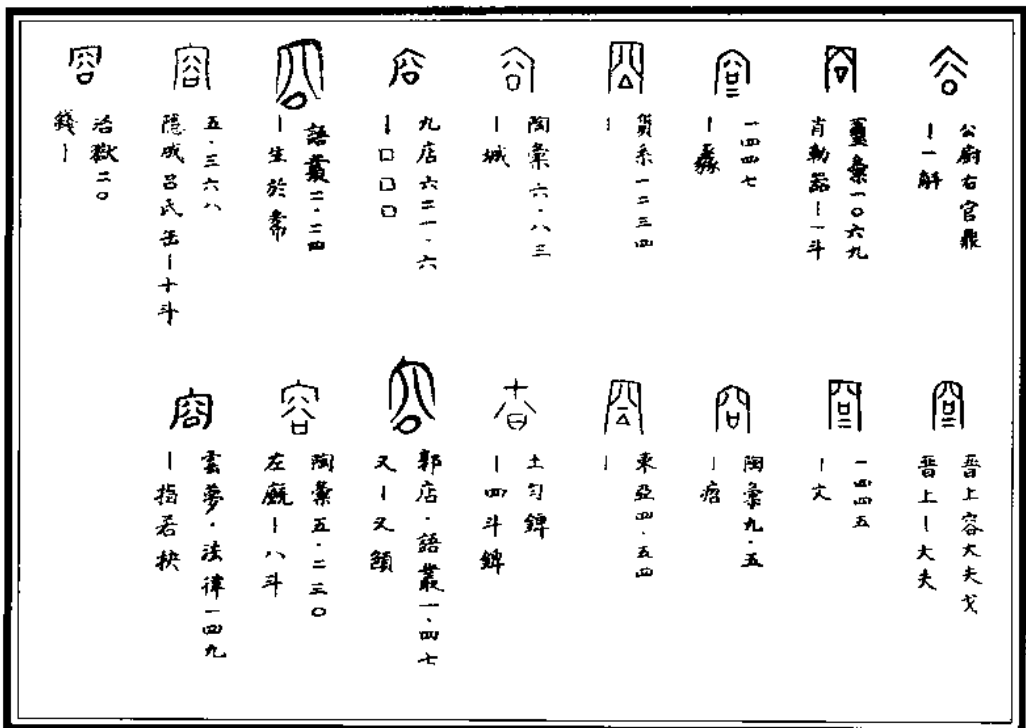 公廚右官鼎
丨一斛
璽彙一〇六九
肖勒器丨一斗
一四四七
丨
貨系一二三四
丨
陶彙六·八三
丨城
九店六二一·六
丨口口口
語叢二·二四
丨生於
五·三六八
隱成呂氏缶丨十斗
活獄二〇
錢丨
晉上容大夫戈
晉上丨大夫
一四四五
丨文
陶彙九·五
丨
東亞四·五四
丨
土勻錍
丨四斗錍
郭店·語叢一·四七
又丨又
陶彙五·二三〇
左廄丨八斗
雲夢·法律一四九
丨指若抉